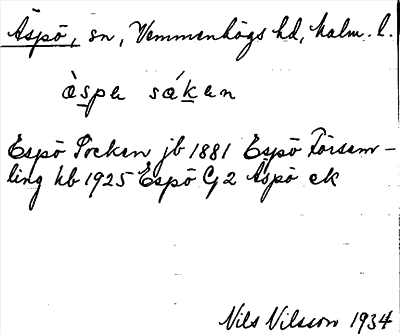 Äspö, sn, Vemmenhögs hd, malm. l.
àspe sákan
Espö Socken jb 1881 Espö Försam-
ling kb 1925 Espö G2 Äspö ek
Nils Nilsson 1934